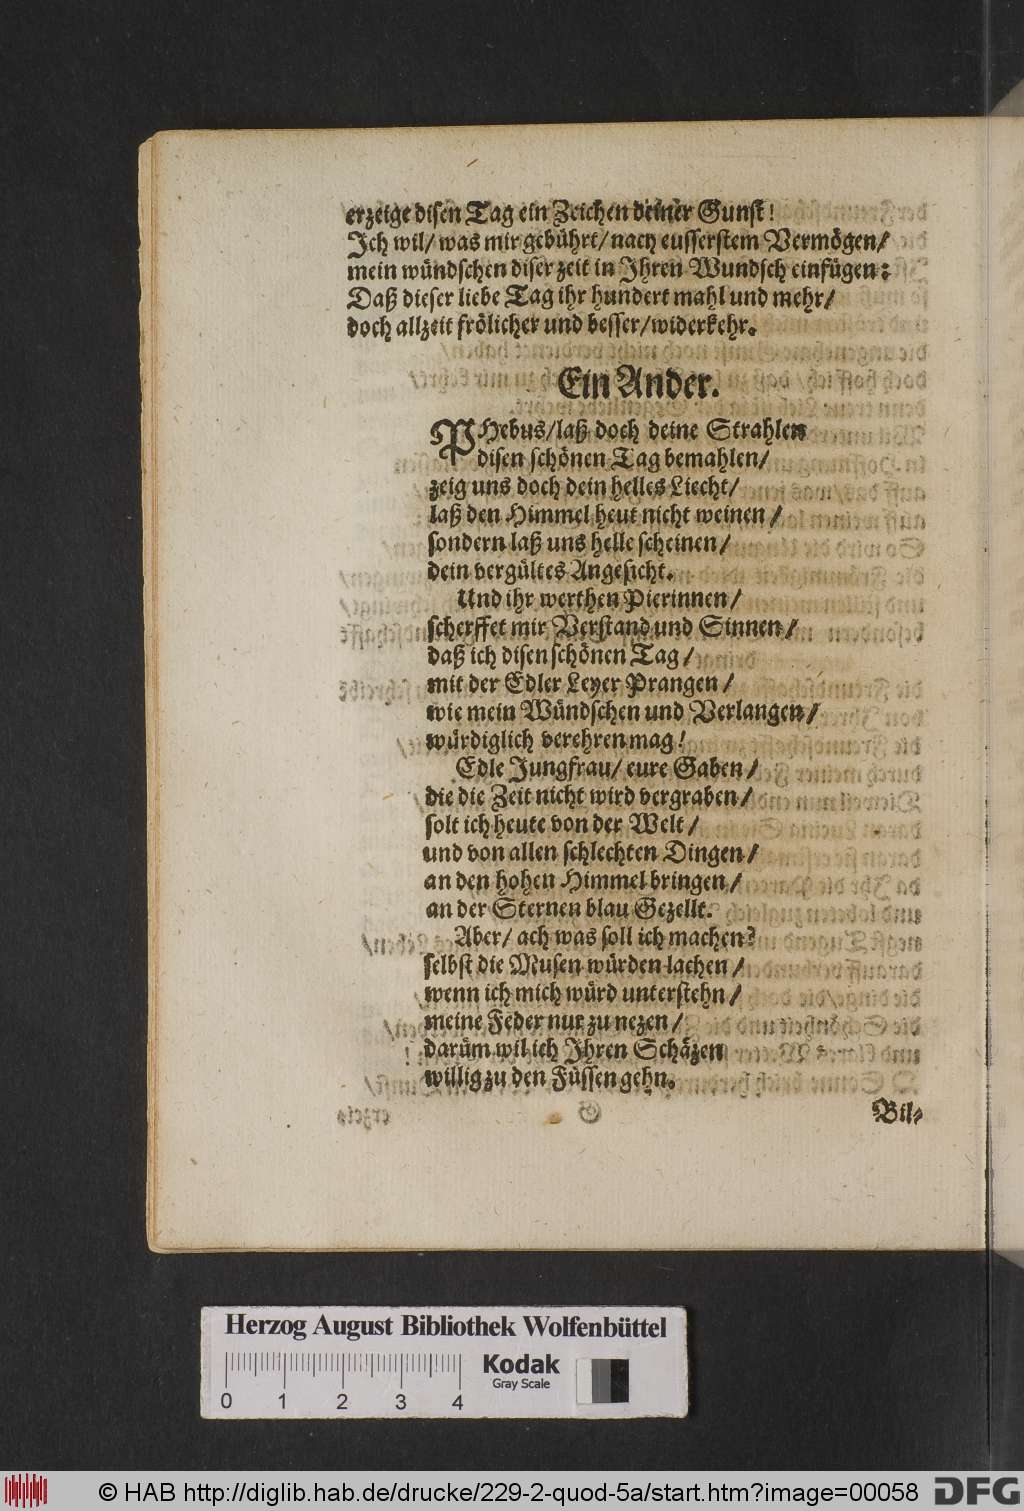 erzeige disen Tag ein Zeichen deiner Gunst!
Ich wil/ was mir gebührt/ nach eusserstem Vermögen/
mein wündschen diser zeit in Ihren Wundsch einfügen:
Daß dieser liebe Tag ihr hundert mahl und mehr/
doch allzeit frölicher und besser/ widerkehr.
Ein Ander.
PHebus/ laß doch deine Strahlen
disen schönen Tag bemahlen/
zeig uns doch dein helles Liecht/
laß den Himmel heut nicht weinen/
sondern laß uns helle scheinen/
dein vergültes Angesicht.
Und ihr werthen Pierinnen/
scherffet mir Verstand und Sinnen/
daß ich disen schönen Tag/
mit der Edler Leyer Prangen/
wie mein Wündschen und Verlangen/
würdiglich verehren mag!
Edle Jungfrau/ eure Gaben/
die die Zeit nicht wird vergraben/
solt ich heute von der Welt/
und von allen schlechten Dingen/
an den hohen Himmel bringen/
an der Sternen blau Gezellt.
Aber/ ach was soll ich machen?
selbst die Musen würden lachen/
wenn ich mich würd unterstehn/
meine Feder nur zu nezen/
darüm wil ich Ihren Schäzen
willig zu den Füssen gehn.
Bil-
Herzog August Bibliothek Wolfenbüttel
Kodak
Gray Scale
0 1 2 3 4
© HAB http://diglib.hab.de/drucke/229-2-quod-5a/start.htm?image=00058
DFG